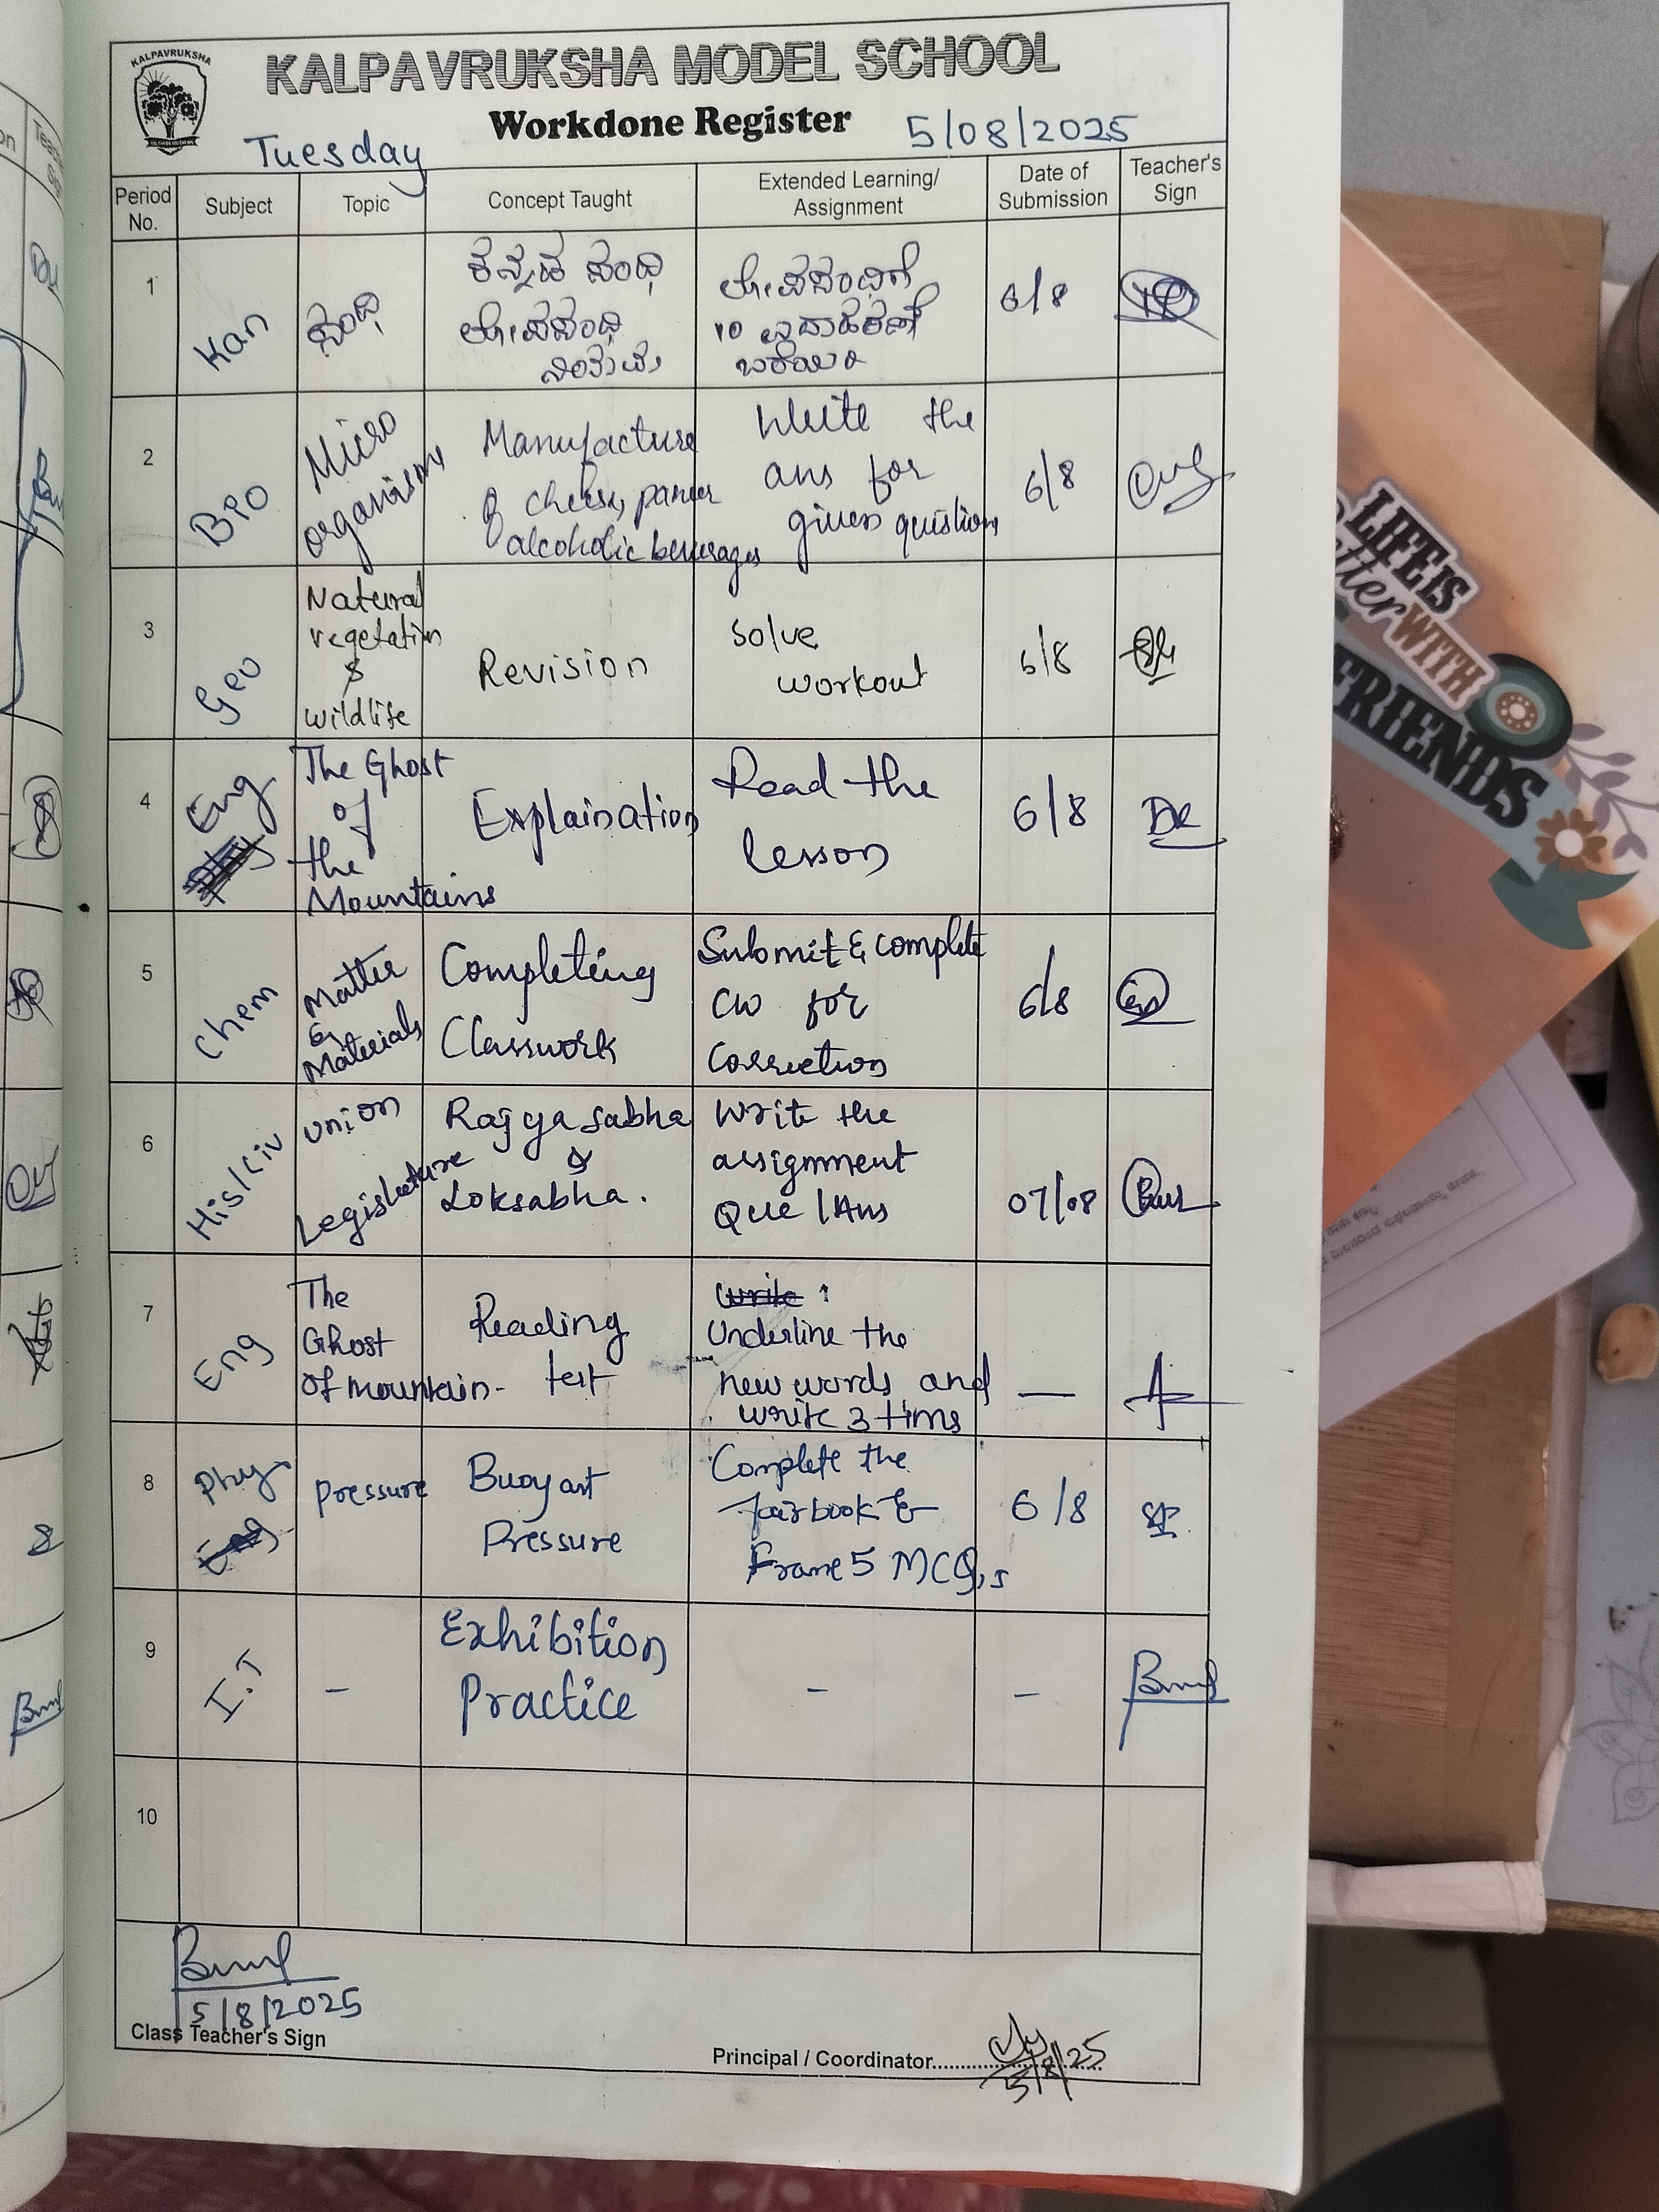 KALPAVRUKSHA
KALPAVRUKSHA MODEL SCHOOL
Workdone Register
Tuesday
5/08/2025
Period No.
Subject
Topic
Concept Taught
Extended Learning/
Assignment
Date of
Submission
Teacher's
Sign
1
Kan
ಸಂಧಿ
ಕನ್ನಡ ಸಂಧಿ
ಲೋಪಸಂಧಿ
ಲೋಪಸಂಧಿಗೆ
10 ಉದಾಹರಣೆ
6/8
2
BIO
Micro
organisms
Manufacture
of cheese, paneer
alcoholic beverages
Write the
ans for
given questions
6/8
3
Geo
Natural
vegetation
&
wildlife
Revision
Solve
workout
6/8
4
Eng
The Ghost
of
the
Mountains
Explaination
Read the
lesson
6/8
5
Chem
Matter
&
Materials
Completing
Classwork
Submit & complete
CW for
correction
6/8
6
His/Civ
Union
Legislature
Rajya sabha
&
Loksabha.
Write the
assignment
Que / Ans
07/08
7
Eng
The
Ghost
Of mountain-
Reading
test
write
Underline the
new words and
write 3 tims
—
8
Phy
Eng
pressure
Buoyant
Pressure
Complete the
fairbook &
Frame 5 MCQ,s
6/8
9
I.T
-
Exhibition
Practice
-
-
10
5/8/2025
Class Teacher's Sign
Principal / Coordinator
5/8/25
LIFE IS
Better WITH
FRIENDS